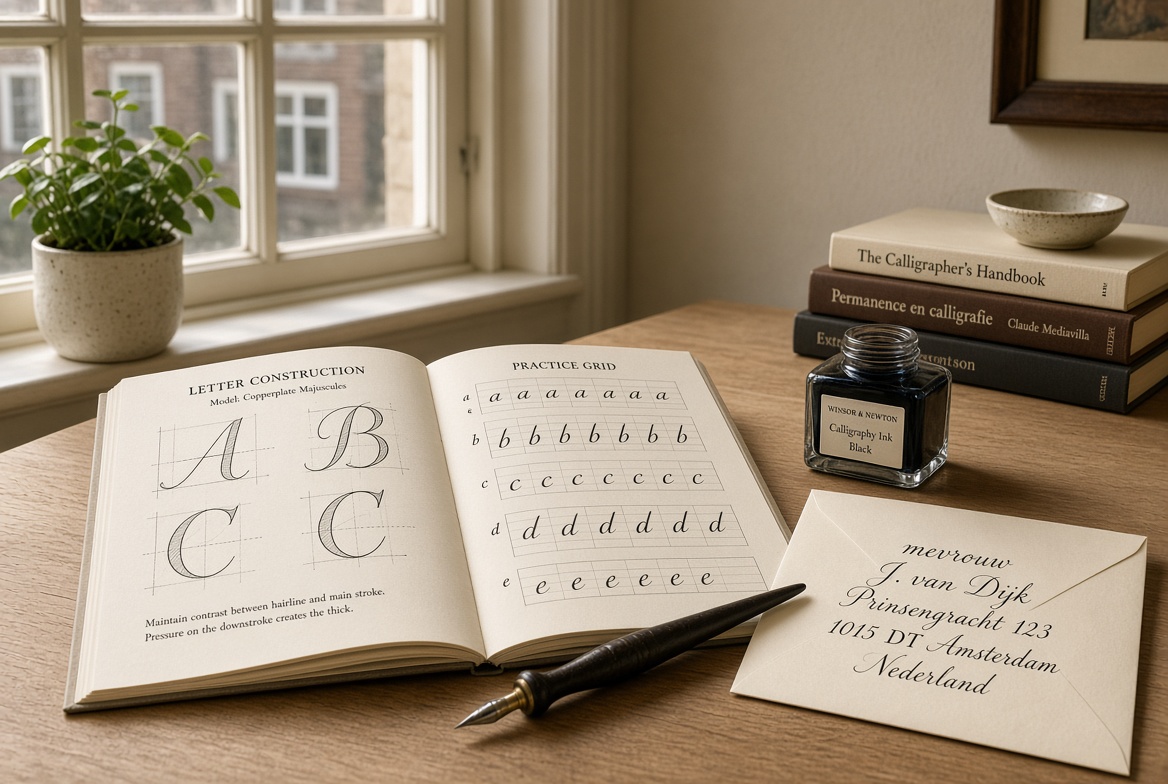 LETTER CONSTRUCTION
Model: Copperplate Majuscules
A B
C C
Maintain contrast between hairline and main stroke.
Pressure on the downstroke creates the thick.
PRACTICE GRID
a a a a a a a a
e
b b b b b b b b
c c c c c c c c
d d d d d d d
e e e e e e e
The Calligrapher's Handbook
Permanence en calligrafie Claude Mediavilla
WINSOR & NEWTON
Calligraphy Ink
Black
mevrouw
J. van Dijk
Prinsengracht 123
1015 DT Amsterdam
Nederland